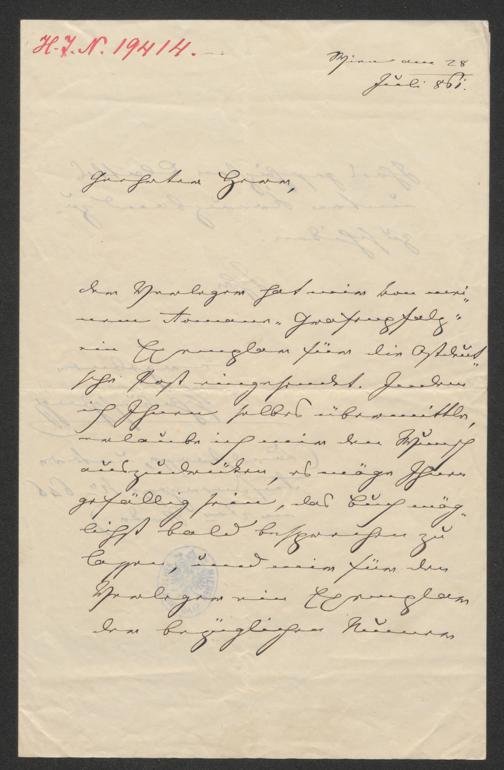 H.I.N. 19414.
Wien am 28
Juli 861.
Geehrter Herr,
der Verleger hat mir von mei-
nem Romane „Grafenpfalz“
ein Exemplar für die Ostdeut-
sche Post eingesendet. Indem
ich Ihnen selbes übermittle,
erlaube ich mir den Wunsch
auszudrücken, es möge Ihnen
gefällig sein, das Buch mög-
lichst bald besprechen zu
lassen, und mir für den
Verleger ein Exemplar
der bezüglichen Numer